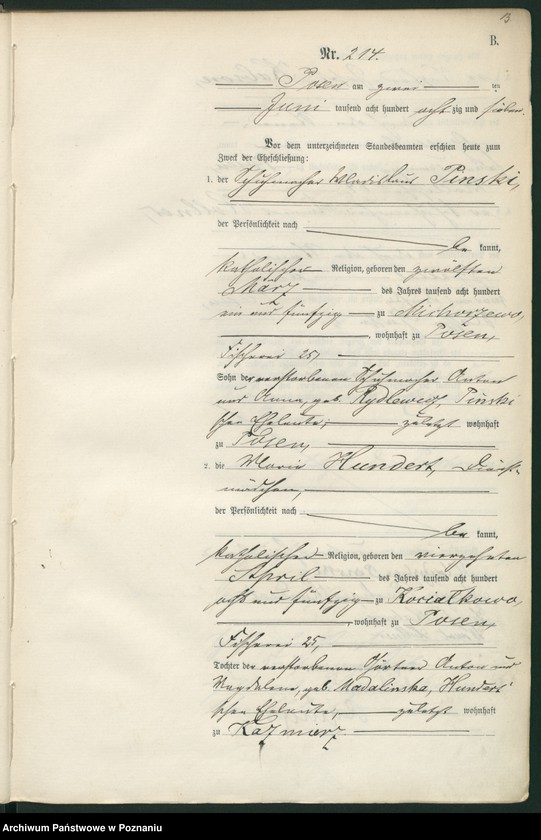 B
B.
Nr. 214.
Posen am zwei ten
Juni tausend acht hundert acht zig und sieben.
Vor dem unterzeichneten Standesbeamten erschien heute zum
Zweck der Eheschließung:
1. der Schuhmacher Wladislaus Pinski,
der Persönlichkeit nach
be kannt,
katholischer Religion, geboren den zwölften
März des Jahres tausend acht hundert
ein und fünfzig zu Michorzewo,
, wohnhaft zu Posen,
Fischerei 25,
Sohn der verstorbenen Schuhmacher Anton
und Anna, geb. Rydlewicz, Pinski
schen Eheleute, zuletzt wohnhaft
zu Posen,
2. die Marie Hundert, Dienst-
mädchen,
der Persönlichkeit nach
be kannt,
katholischer Religion, geboren den vierzehnten
April des Jahres tausend acht hundert
acht und fünfzig zu Koszialkowo,
, wohnhaft zu Posen,
Fischerei 25,
Tochter der verstorbenen Gärtner Anton und
Magdalena, geb. Madalinska, Hundert'
schen Eheleute, zuletzt wohnhaft
zu Kazmierz
Archiwum Państwowe w Poznaniu